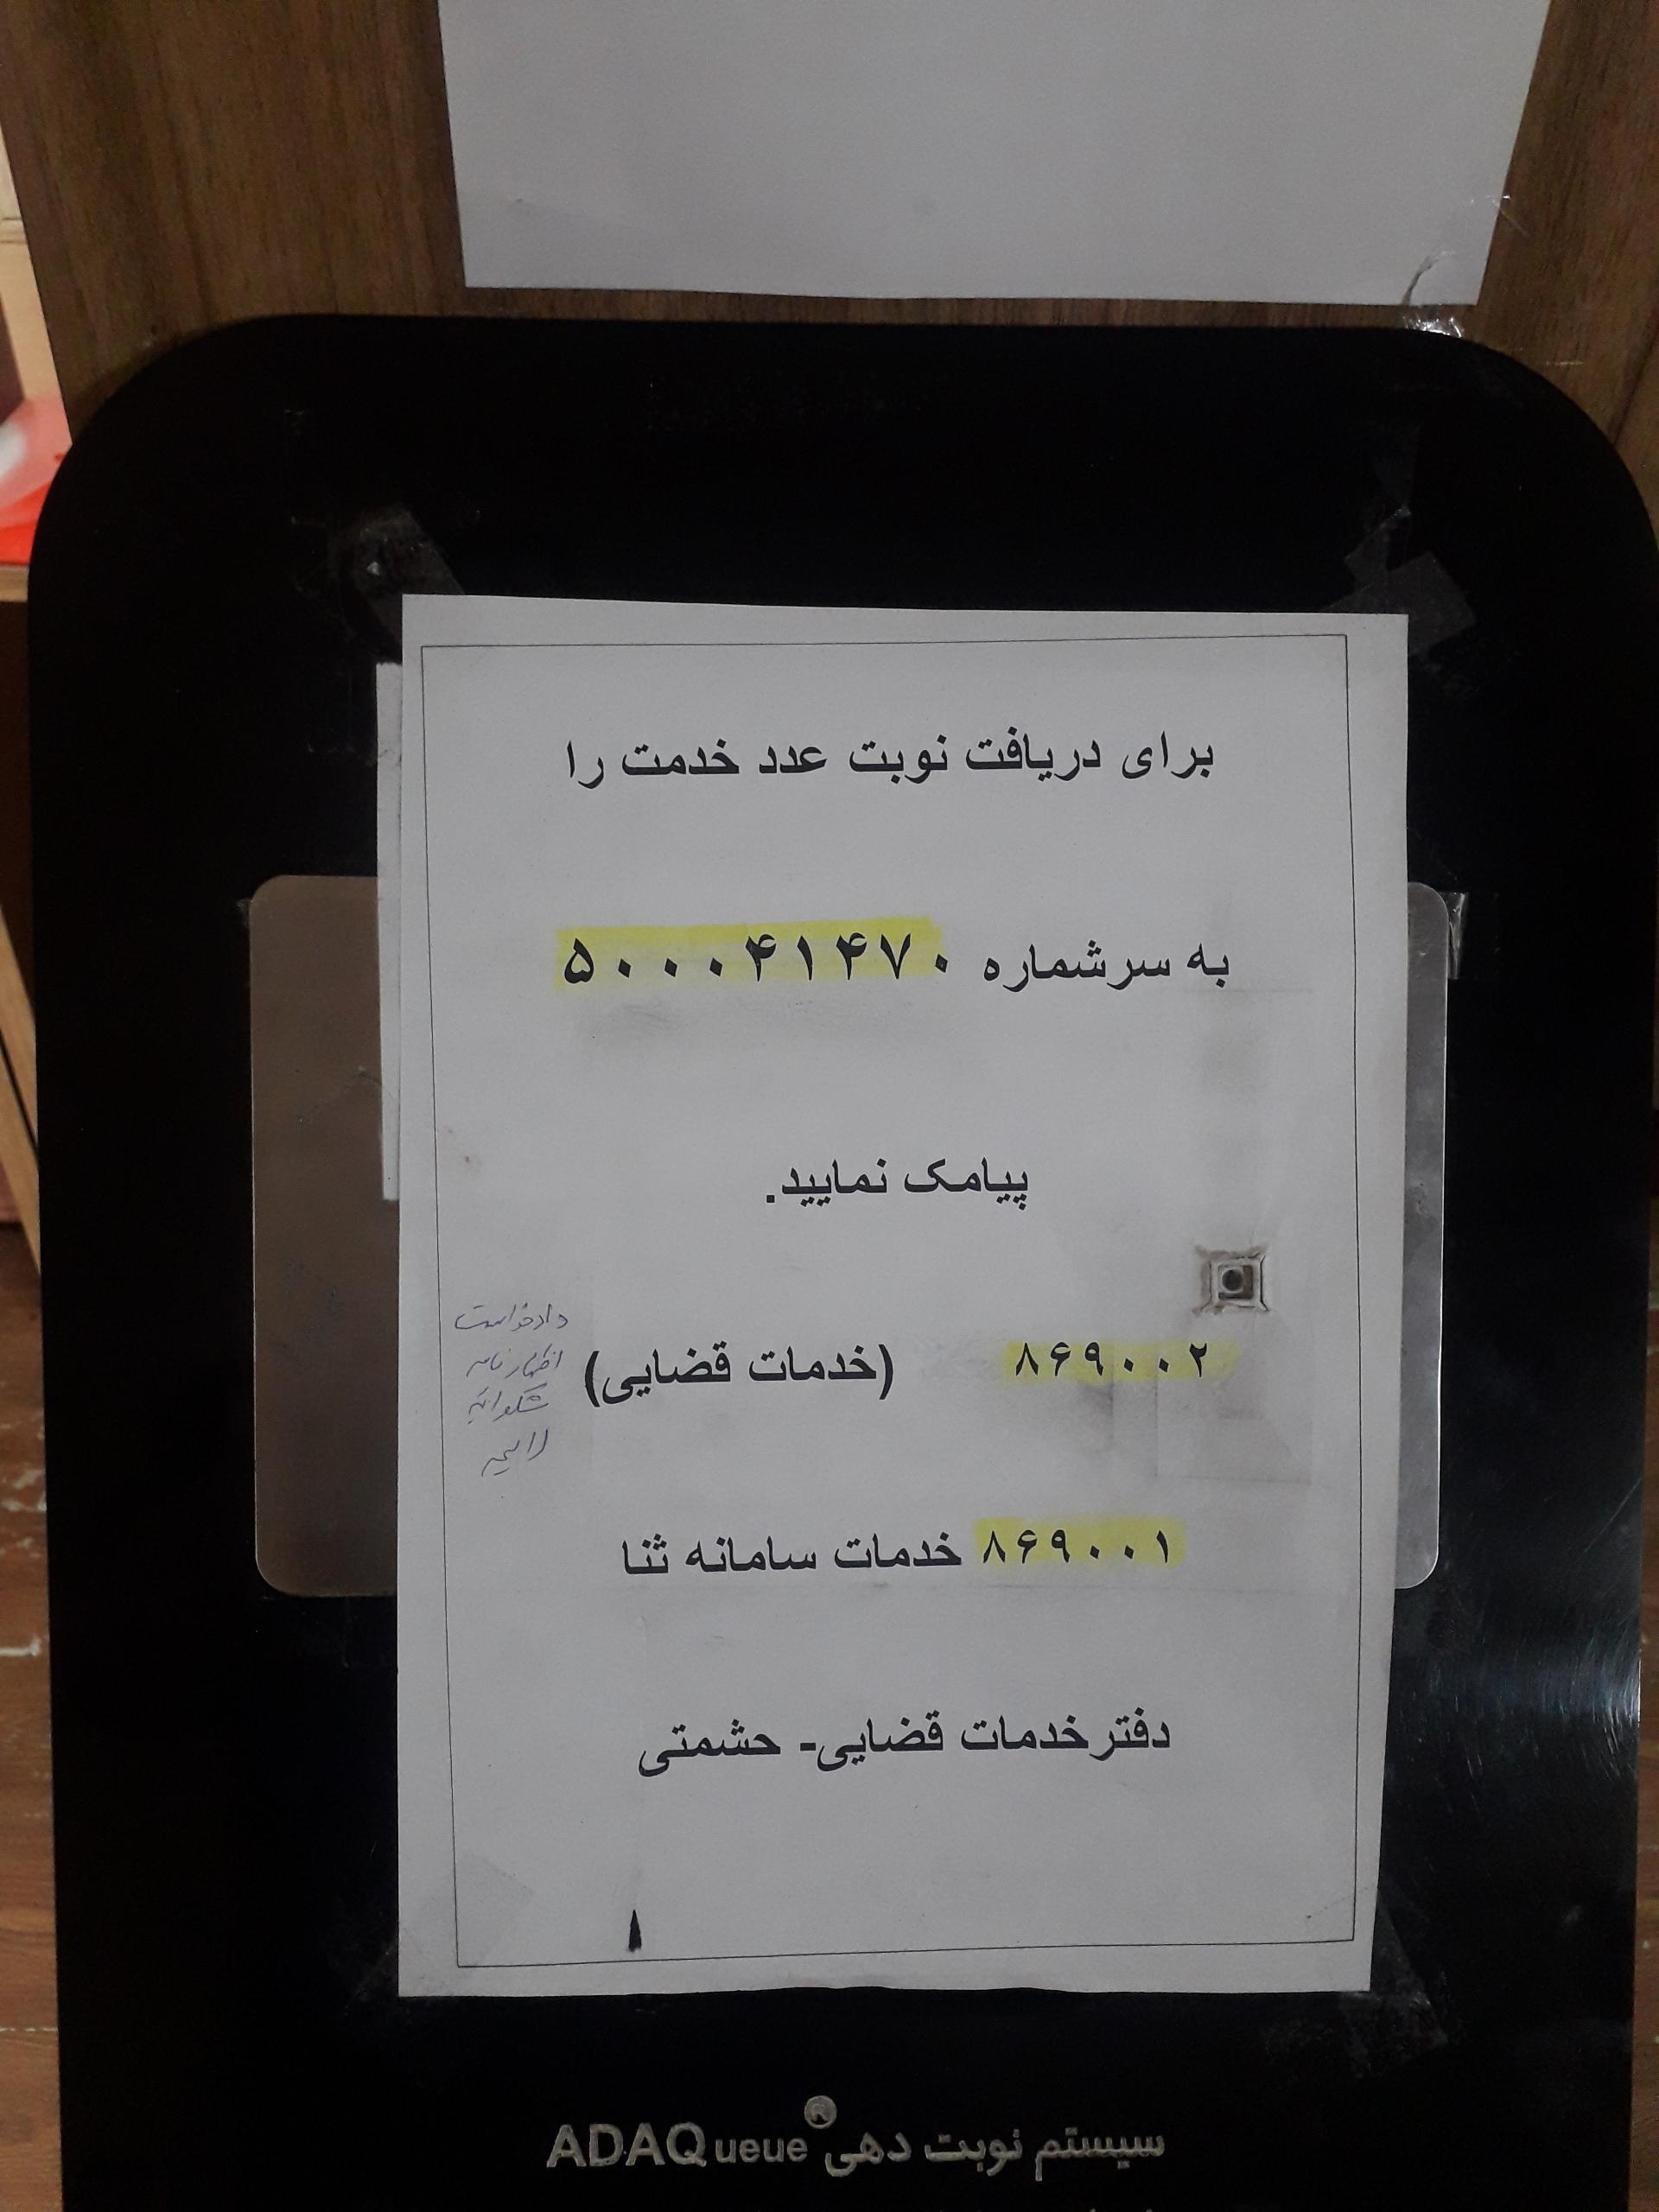 برای دریافت نوبت عدد خدمت را
به سرشماره ۵۰۰۰۴۱۴۷۰
پیامک نمایید.
۸۶۹۰۰۲ (خدمات قضایی)
دادخواست
اظهارنامه
شکوائیه
لایحه
۸۶۹۰۰۱ خدمات سامانه ثنا
دفتر خدمات قضایی- حشمتی
سیستم نوبت دهی ADAQueue®